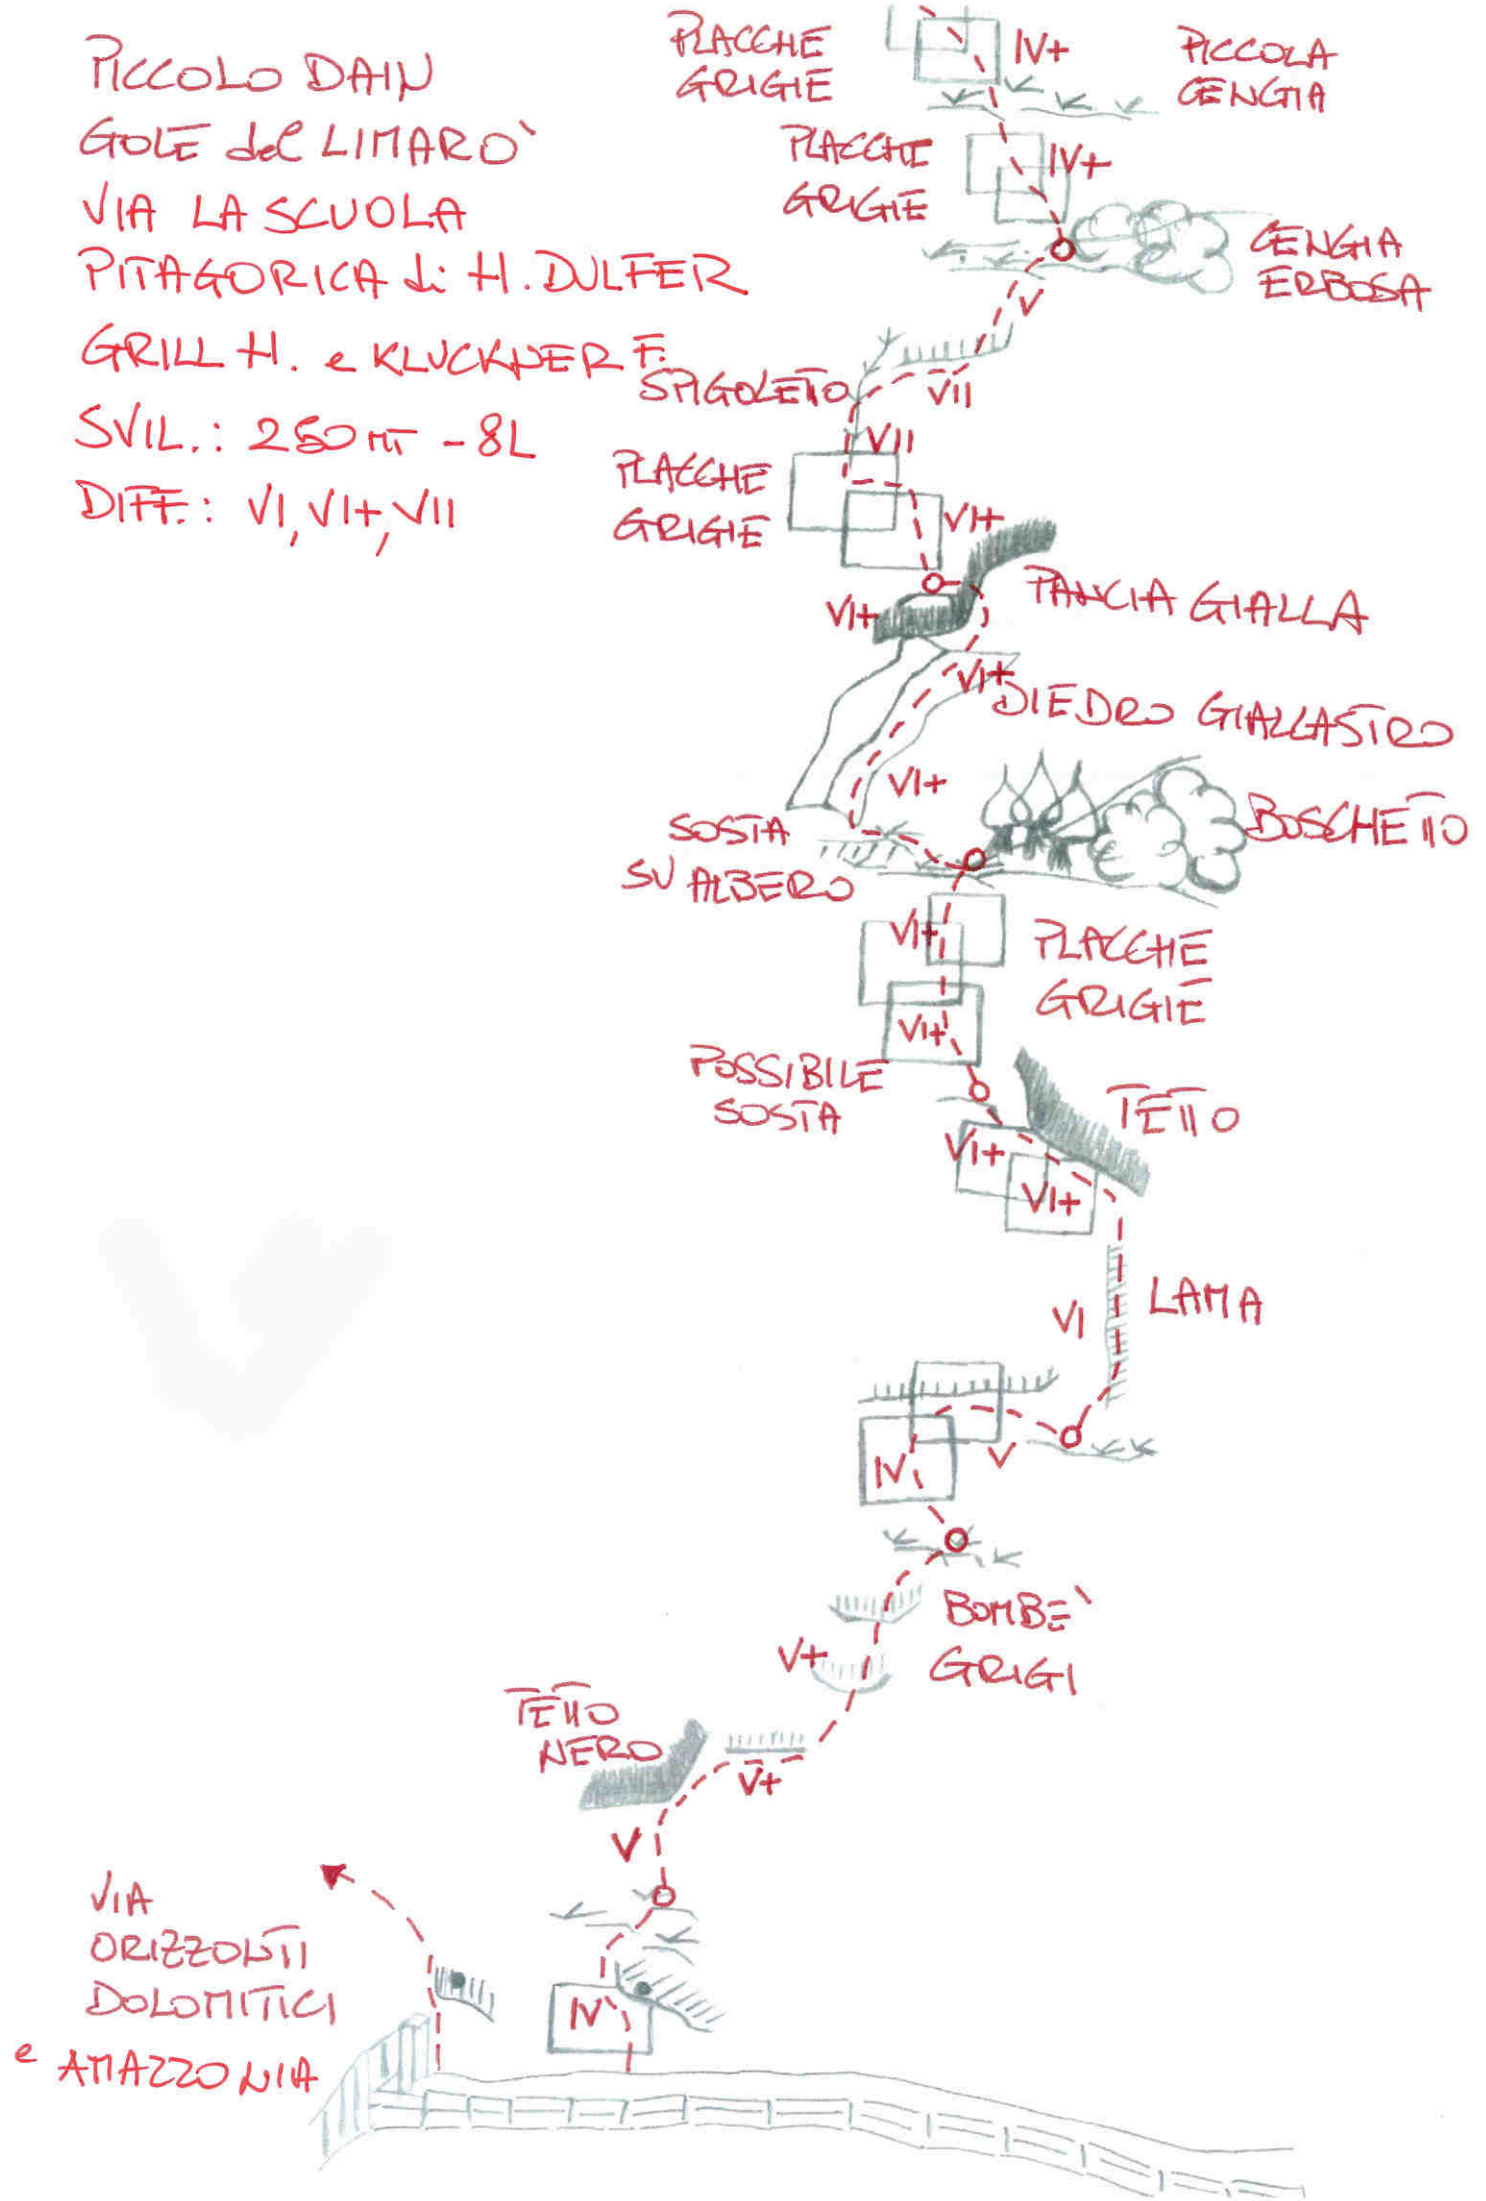 PICCOLO DAIN
GOLE del LIMARO'
VIA LA SCUOLA
PITAGORICA di H. DULFER
GRILL H. e KLUCKNER F.
SVIL.: 250 MT - 8L
DIFF.: VI, VI+, VII
PLACCHE
GRIGIE
IV+
PICCOLA
CENGIA
PLACCHE
GRIGIE
IV+
CENGIA
ERBOSA
V
SPIGOLETO
VII
VII
PLACCHE
GRIGIE
VI+
PANCIA GIALLA
VI+
VI+
DIEDRO GIALLASTRO
VI+
SOSTA
SU ALBERO
BOSCHETTO
VI+
PLACCHE
GRIGIE
VI+
POSSIBILE
SOSTA
TETTO
VI+
VI+
LAMA
VI
V
IV
BOMBE'
GRIGI
V+
TETTO
NERO
V+
V
VIA
ORIZZONTI
DOLOMITICI
e AMAZZONIA
IV